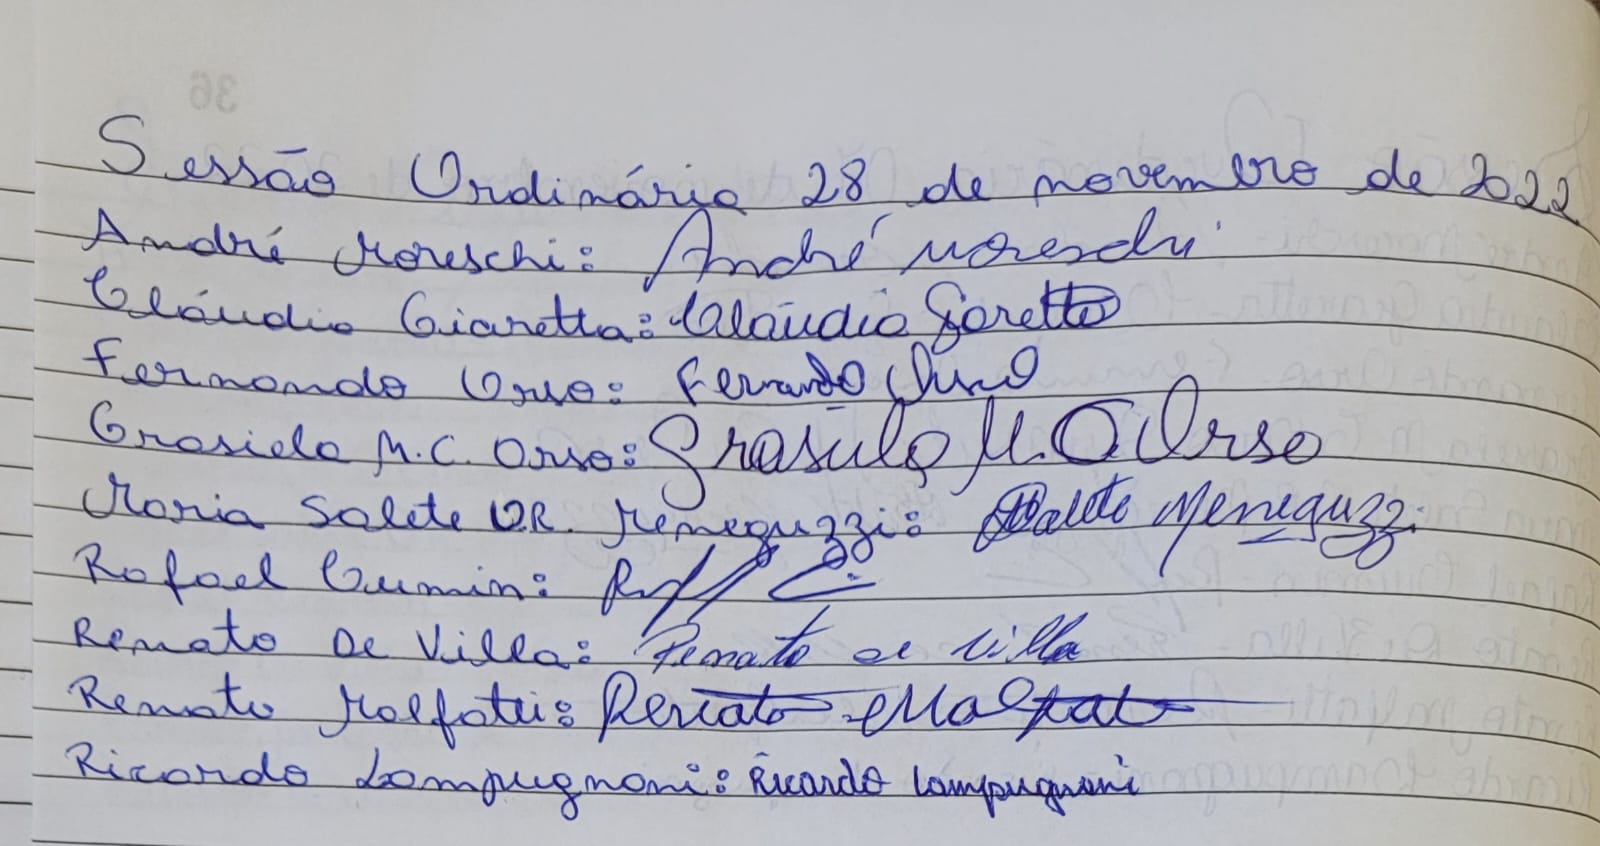 Sessão Ordinária 28 de novembro de 2022
André Moreschi: André Moreschi
Cláudio Giaretta: Cláudio Garetto
Fernando Orso: Fernando Orso
Grasiela M.C. Orso: Grasiela M. C Orso
Maria Salete D.R. Meneguzzi: Salete Meneguzzi
Rafael Cumin:
Renato De Villa: Renato de Villa
Renato Malfatti: Renato Malfatti
Ricardo Lampugnani: Ricardo Lampugnani
36